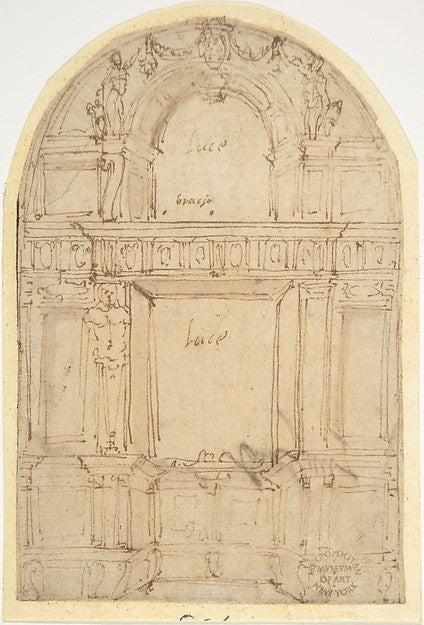 Luce
Luce
METROPOLITAN
MUSEUM
OF ART
NEW YORK